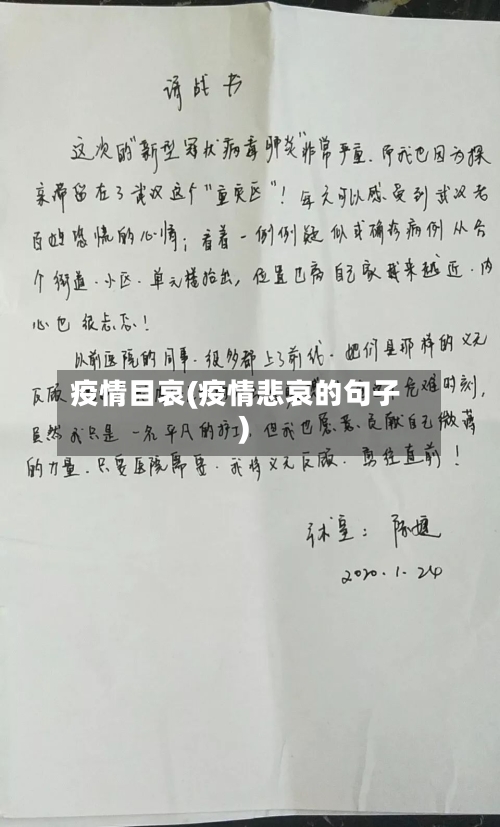 请战书
这次的"新型冠状病毒肺炎"非常严重.而我也因为探
亲滞留在了武汉这个"重灾区"！每天可以感受到武汉老
百姓恐慌的心情；看着一例例疑似或确诊病例从各
个街道.小区.单元楼抬出，位置也离自己家越来越近.内
心也很忐忑！
以前医院的同事.很多都上了前线.她们是那样的义无
反顾
危难时刻,
疫情目哀(疫情悲哀的句子
)
虽然我只是一名平凡的护工，但我也愿意贡献自己微薄
的力量.只要医院需要.我将义无反顾.勇往直前！
2020.1.24